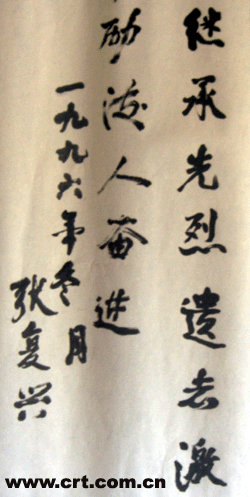 继承先烈遗志激
励後人奋进
一九九六年冬月
张复兴
www.crt.com.cn